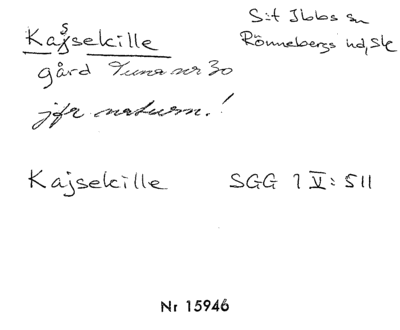 Kajsekille
S:t Ibbs sn
Rönnebergs hd, Sk
gård Tuna nr 30
jfr naturn.!
Kajsekille SGG 1 V: 511
Nr 15946